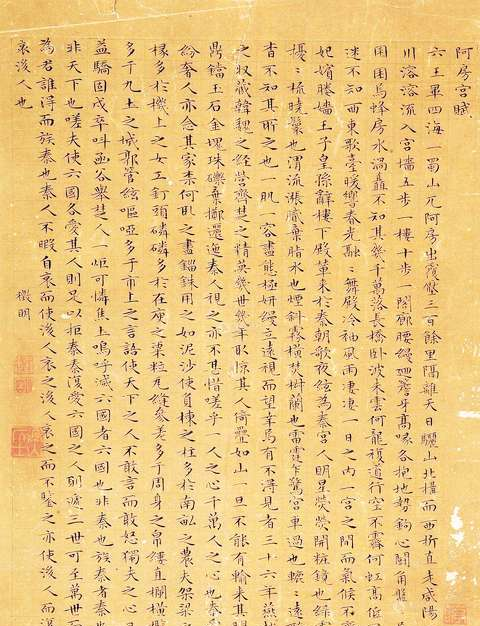 阿房宮賦
六王畢四海一蜀山兀阿房出覆壓三百餘里隔離天日驪山北構而西折直走咸陽
川溶溶流入宮墻五步一樓十步一閣廊腰縵迴簷牙高啄各抱地勢鈎心鬭角盤
囷囷焉蜂房水渦矗不知其幾千萬落長橋臥波未雲何龍複道行空不霽何虹高低
迷不知西東歌臺暖響春光融〻舞殿冷袖風雨淒淒一日之內一宮之間而氣候不
妃嬪媵嬙王子皇孫辭樓下殿輦來於秦朝歌夜絃為秦宮人明星熒熒開粧鏡也綠
擾〻梳曉鬟也渭流漲膩棄脂水也煙斜霧橫焚椒蘭也雷霆乍驚宮車過也轆〻遠
杳不知其所之也一肌一容盡態極妍縵立遠視而望幸焉有不得見者三十六年燕
之收藏韓魏之經營齊楚之精英幾世幾年取掠其人倚疊如山一旦不能有輸來其間
鼎鐺玉石金塊珠礫棄擲邐迤秦人視之亦不甚惜嗟乎一人之心千萬人之心也秦
紛奢人亦念其家柰何取之盡錙銖用之如泥沙使負棟之柱多於南畝之農夫架梁之
椽多於機上之女工釘頭磷磷多於在庾之粟粒瓦縫參差多于周身之帛縷直欄橫檻
多于九土之城郭管絃嘔啞多于市上之言語使天下之人不敢言而敢怒獨夫之心日
益驕固戍卒叫函谷舉楚人一炬可憐焦土嗚呼滅六國者六國也非秦也族秦者秦也
非天下也嗟夫使六國各愛其人則足以拒秦秦復愛六國之人則遞三世可至萬世而
為君誰得而族秦也秦人不暇自哀而使後人哀之後人哀之而不鑒之亦使後人而
哀後人也
徵明